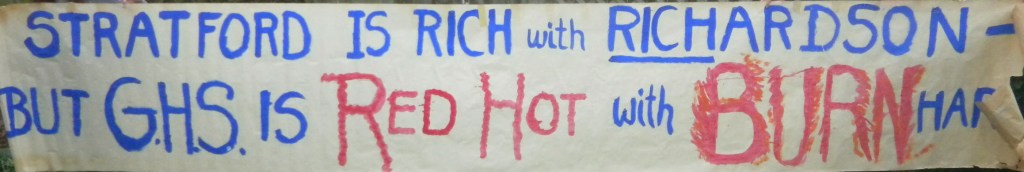 STRATFORD IS RICH with RICHARDSON -
BUT G.H.S. IS RED HOT with BURNHAR